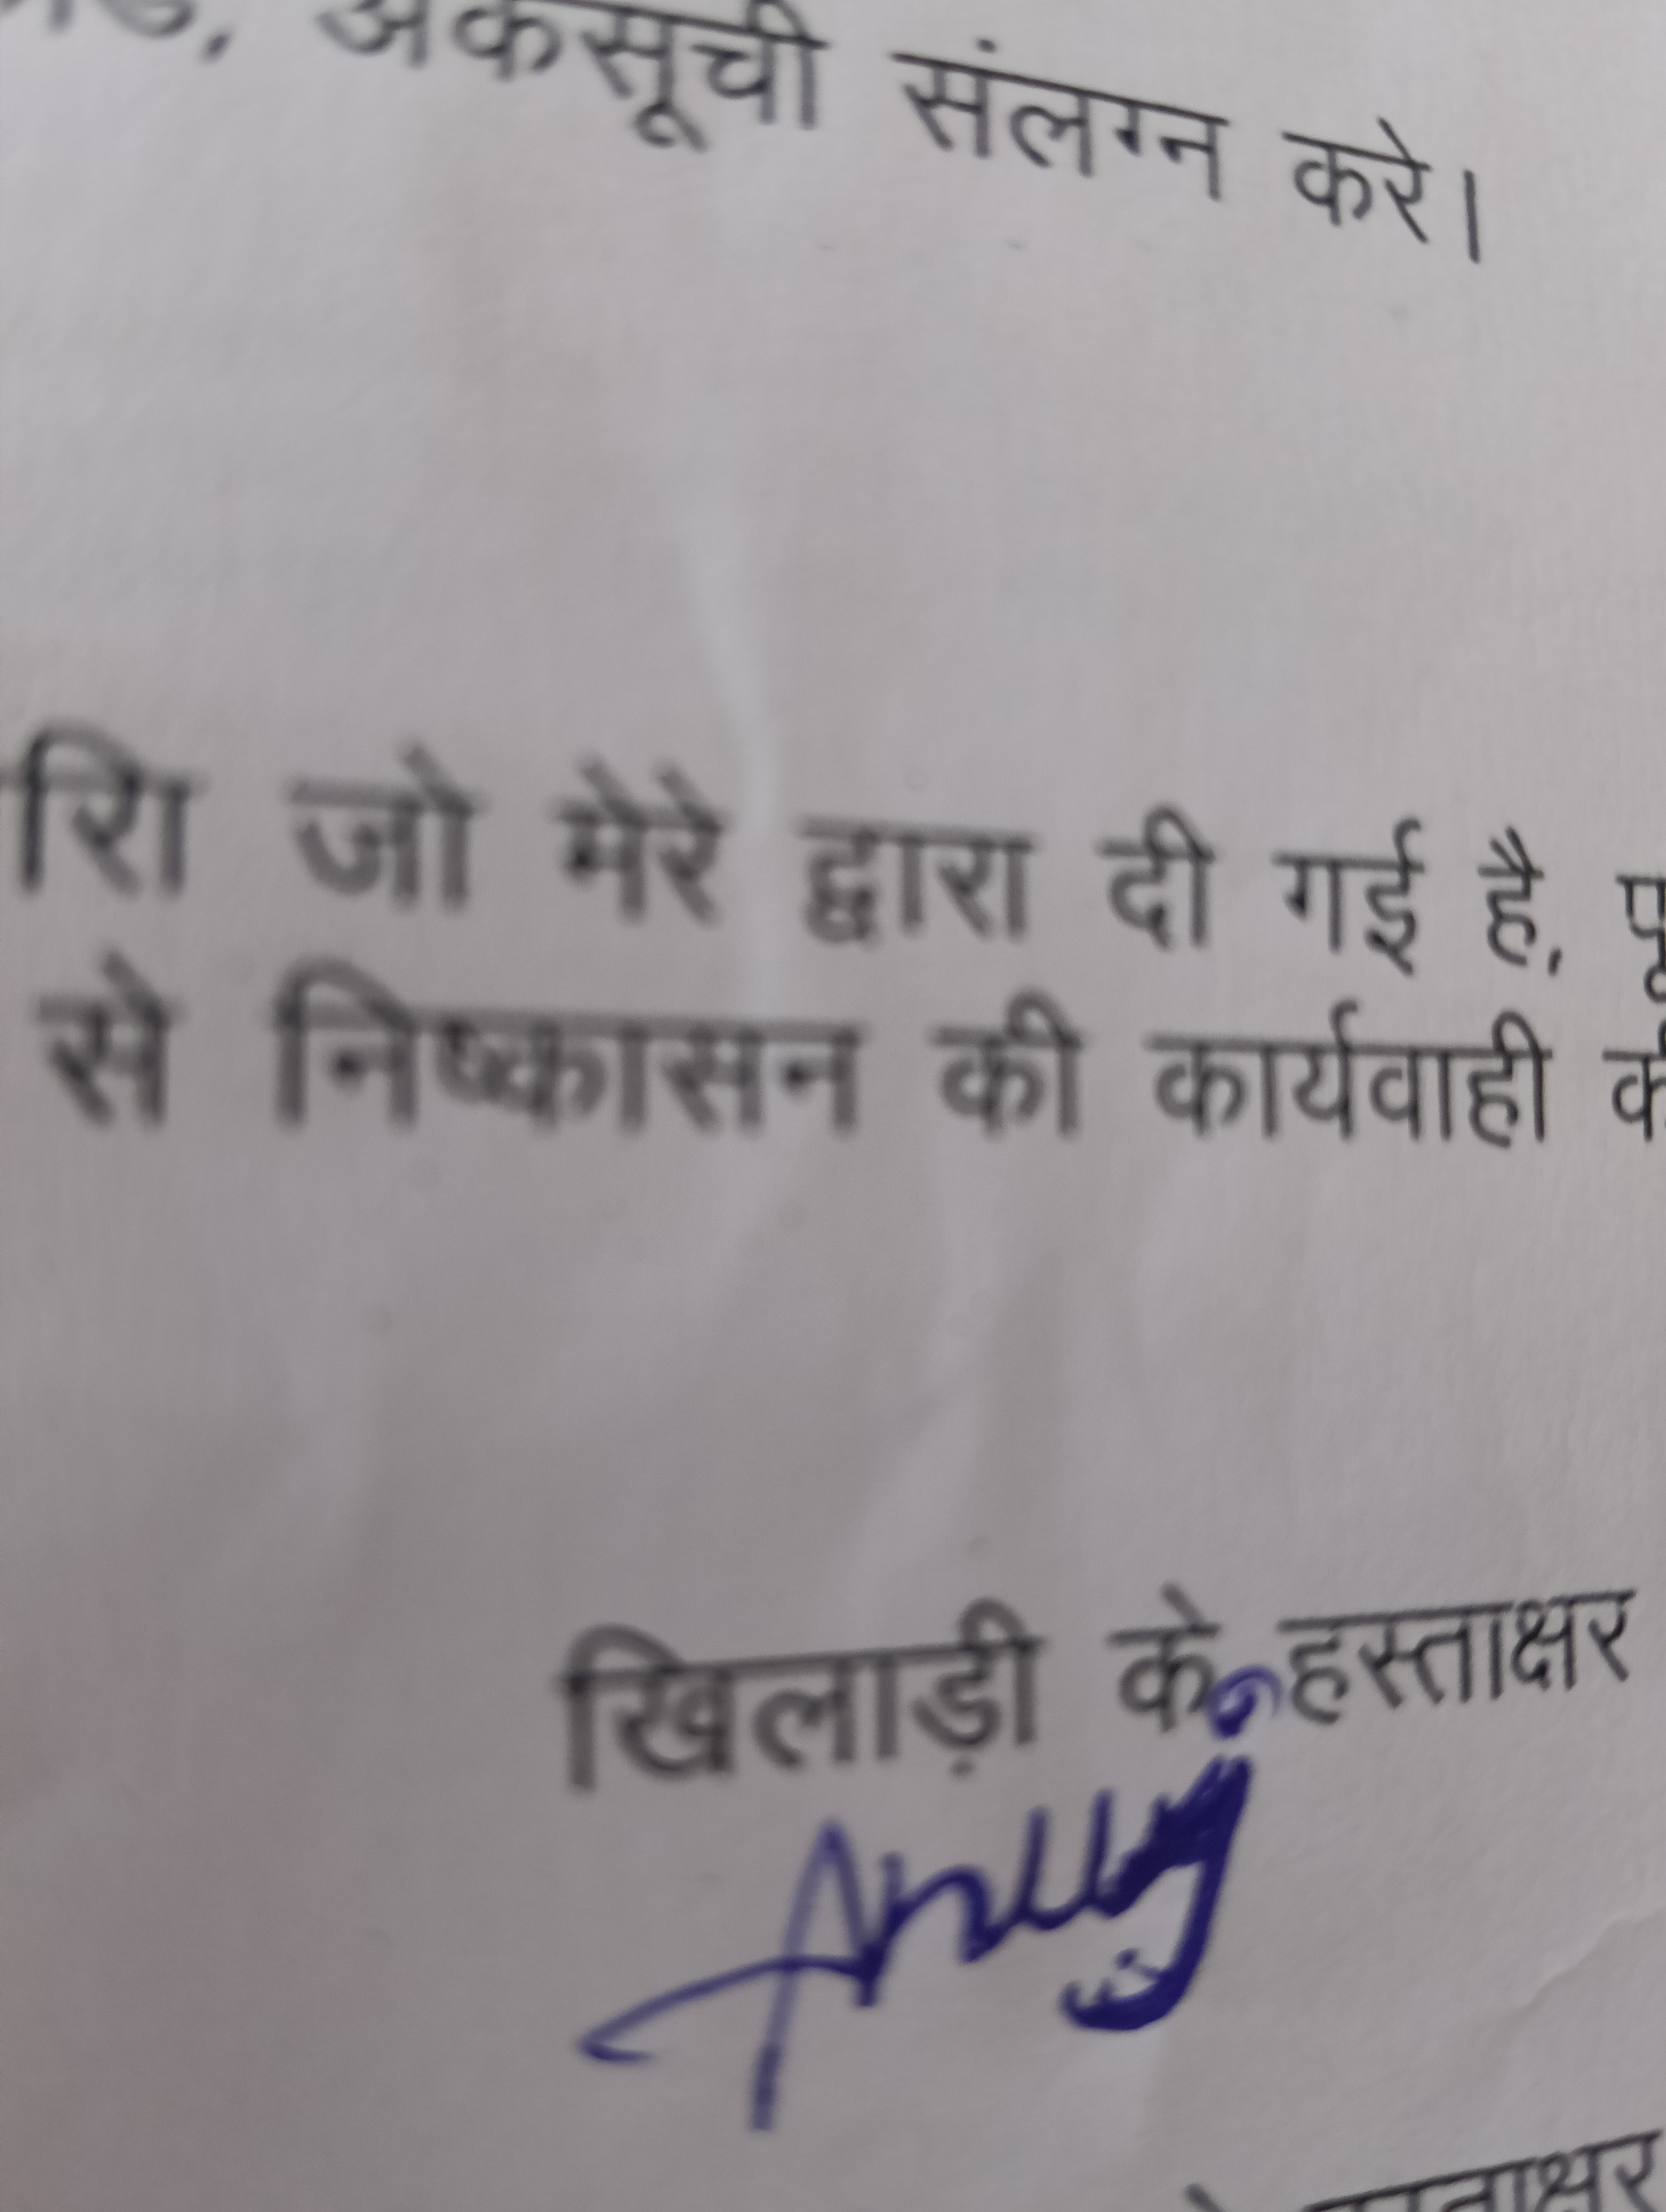 अंकसूची संलग्न करे।
जो मेरे द्वारा दी गई है,
से निष्कासन की कार्यवाही
खिलाड़ी के हस्ताक्षर
Anuj